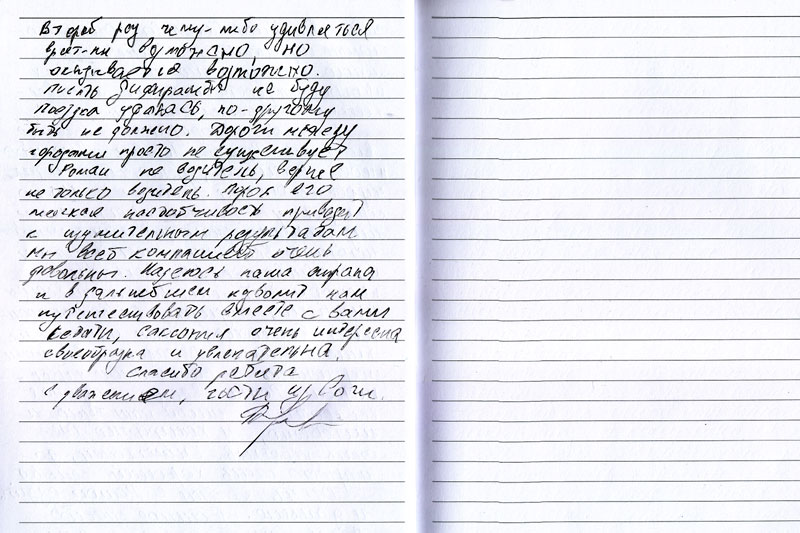 В третий раз чему-либо удивляться
вряд-ли возможно, но
оказывается возможно.
писать дифирамбы не буду
Поездка удалась, по-другому
быть не должно. Дороги между
городами просто не существует
Роман не водитель, вернее
не только водитель.
настойчивость приводит
к изумительным результатам
мы всей компанией очень
довольны. Надеюсь наша
и в дальнейшем позволит нам
путешествовать вместе с вами
кстати, Саксония очень интересна
своеобразна и увлекательна.
спасибо ребята
с уважением, гости из Сочи.